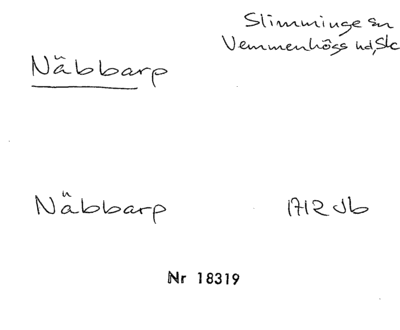 Slimminge sn
Vemmenhögs hd, Sk
Näbbarp
Näbbarp 1712 Jb
Nr 18319